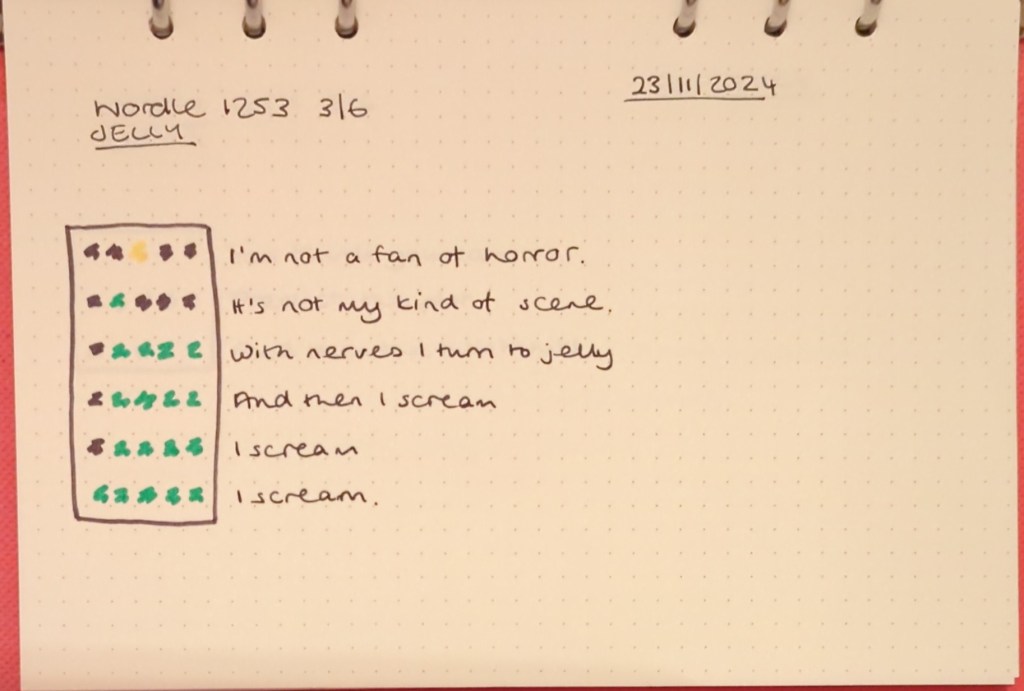 Wordle 1253 3/6
JELLY
23/11/2024
I'm not a fan of horror.
It's not my kind of scene.
With nerves I turn to jelly
And then I scream
I scream
I scream.